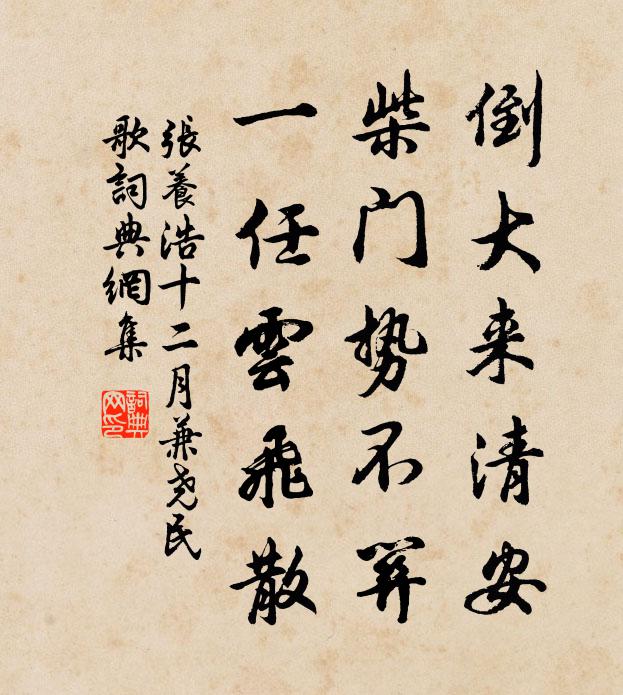 倒大来清安
柴门势不開
一任雲飛散
張養浩十二月兼尧民
歌詞典網集
詞典网印